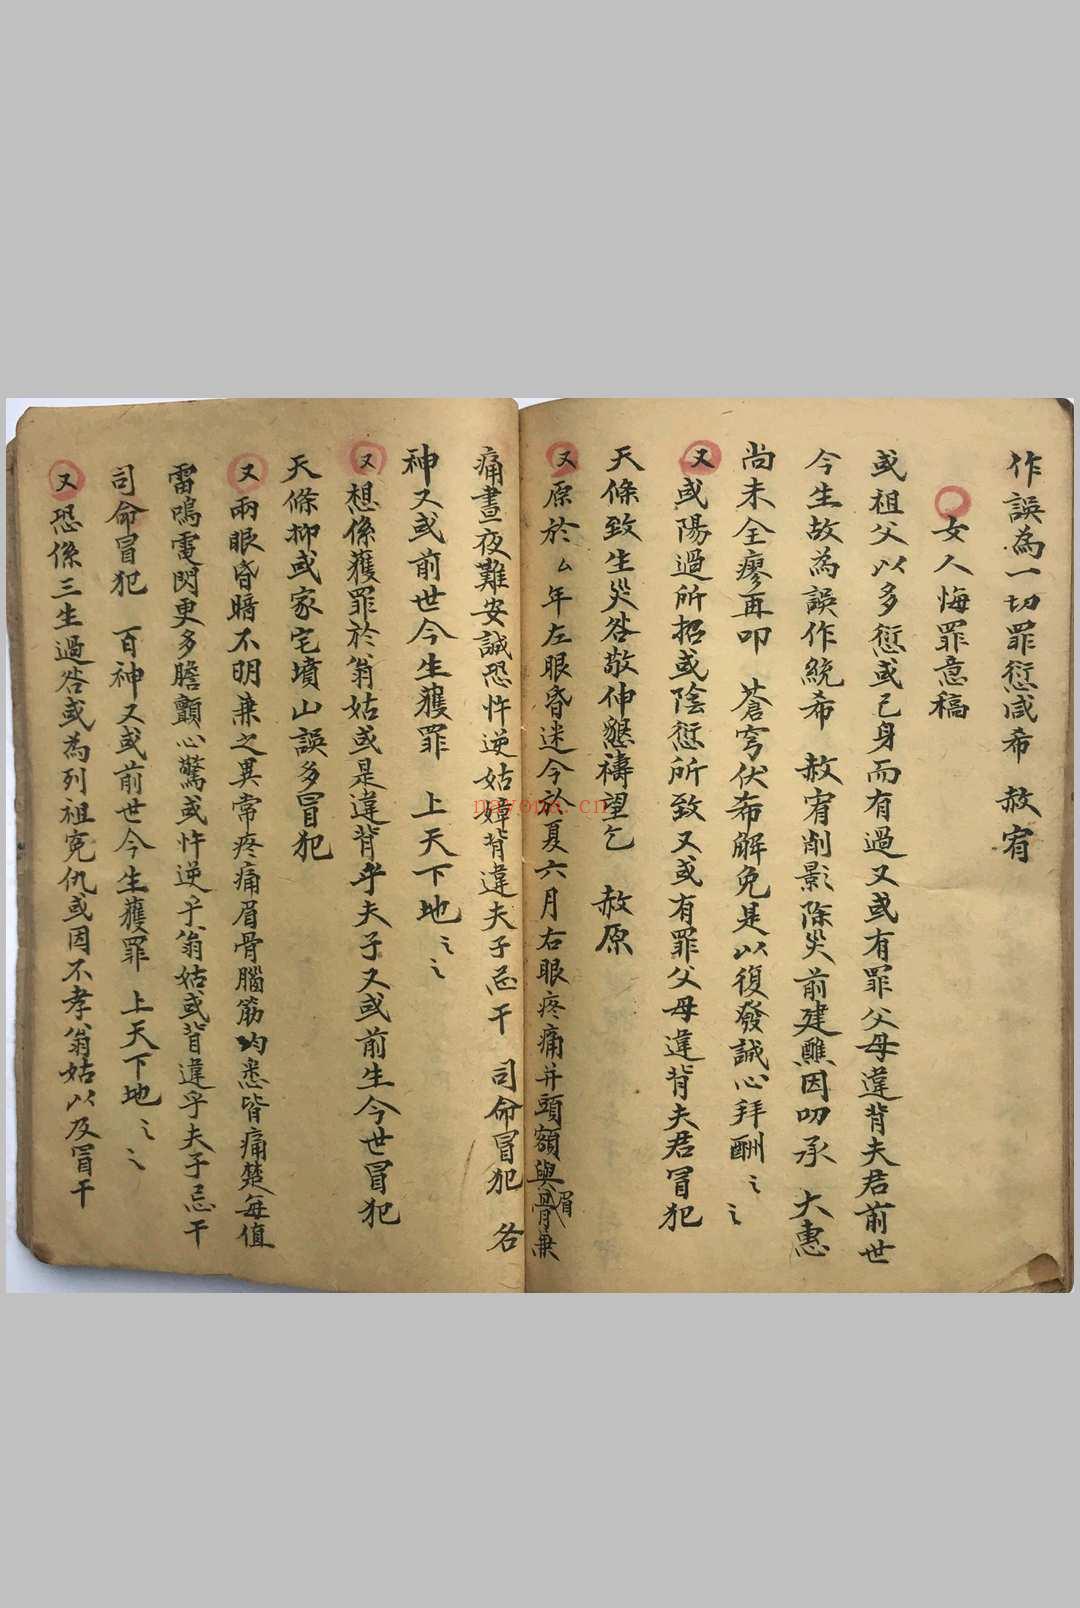 作誤為一切罪愆咸希 赦宥
女人悔罪意稿
或祖父以多愆或己身而有過又或有罪父母違背夫君前世
今生故為誤作統希 赦宥削影除災前建醮因叨承 大惠
尚未全瘳再叩 蒼穹伏希解免是以復發誠心拜酬
又 或陽過所招或陰愆所致又或有罪父母違背夫君冒犯
天條致生災咎敬伸懇禱望乞 赦原
又 原於厶年左眼昏迷今於夏六月右眼疼痛并頭額與眉骨兼
痛晝夜難安誠恐忤逆姑嫜背違夫子忌干 司命冒犯 各
神又或前世今生獲罪 上天下地
又 想係獲罪於翁姑或是違背乎夫子又或前生今世冒犯
天條抑或家宅墳山誤多冒犯
又 兩眼昏暗不明兼之異常疼痛眉骨腦筋均悉皆痛楚每值
雷鳴電閃更多膽顫心驚或忤逆乎翁姑或背違乎夫子忌干
司命冒犯 百神又或前世今生獲罪 上天下地
又 恐係三生過咎或為列祖冤仇或因不孝翁姑以及冒干
nayona.cn